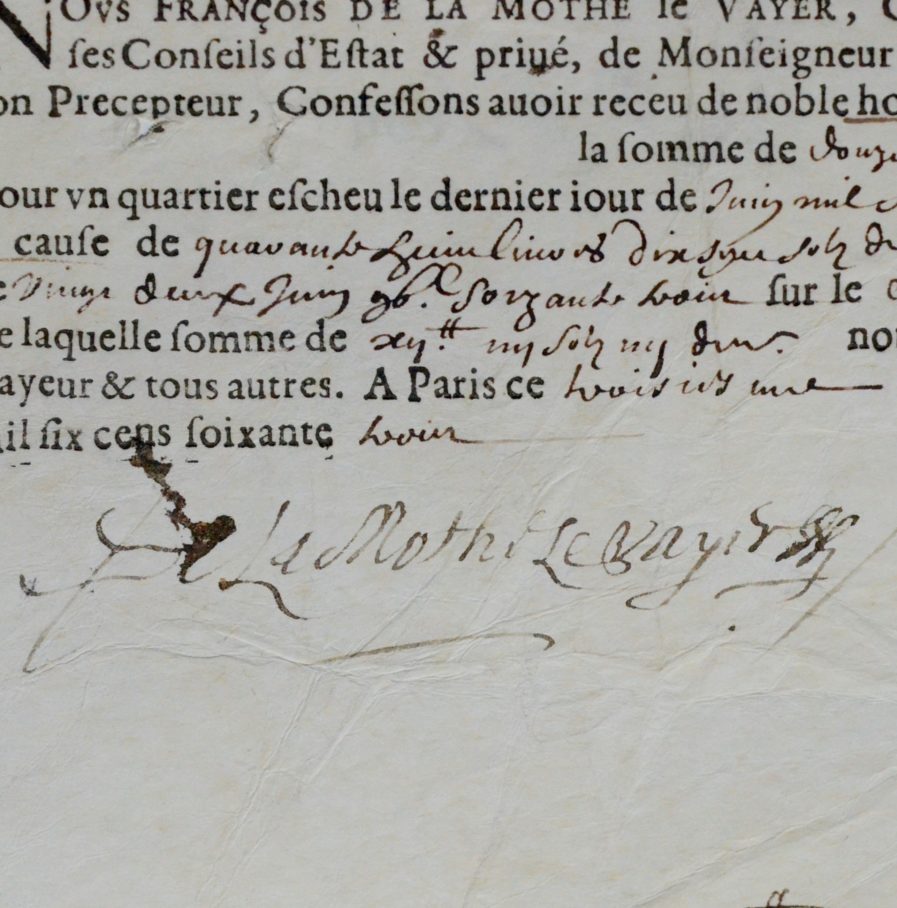 NOVS FRANÇOIS DE LA MOTHE le VAYER,
ſes Conſeils d'Eſtat & priué, de Monſeigneur
on Precepteur, Confeſſons auoir receu de noble ho
la ſomme de douze
our vn quartier eſcheu le dernier iour de Juin mil
cauſe de quarante huit liures dix ſept solz
Vingt deux Juin soixante trois ſur le
e laquelle ſomme de xij.tt iiij solz iiij den. no
ayeur & tous autres. A Paris ce troisiesme
il ſix cens ſoixante trois
De La Mothe Le Vayer